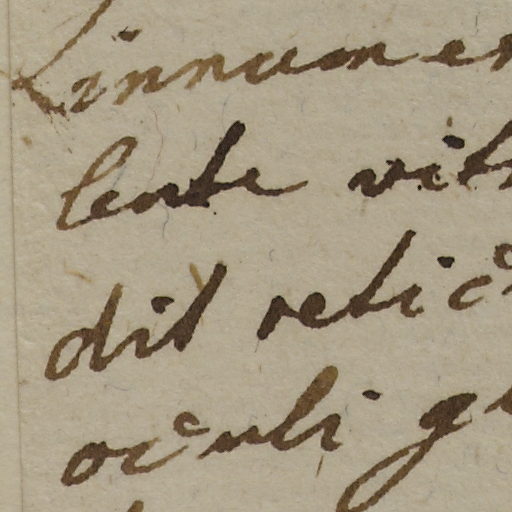 Linnum en
lente vit
dit retic
oculi g